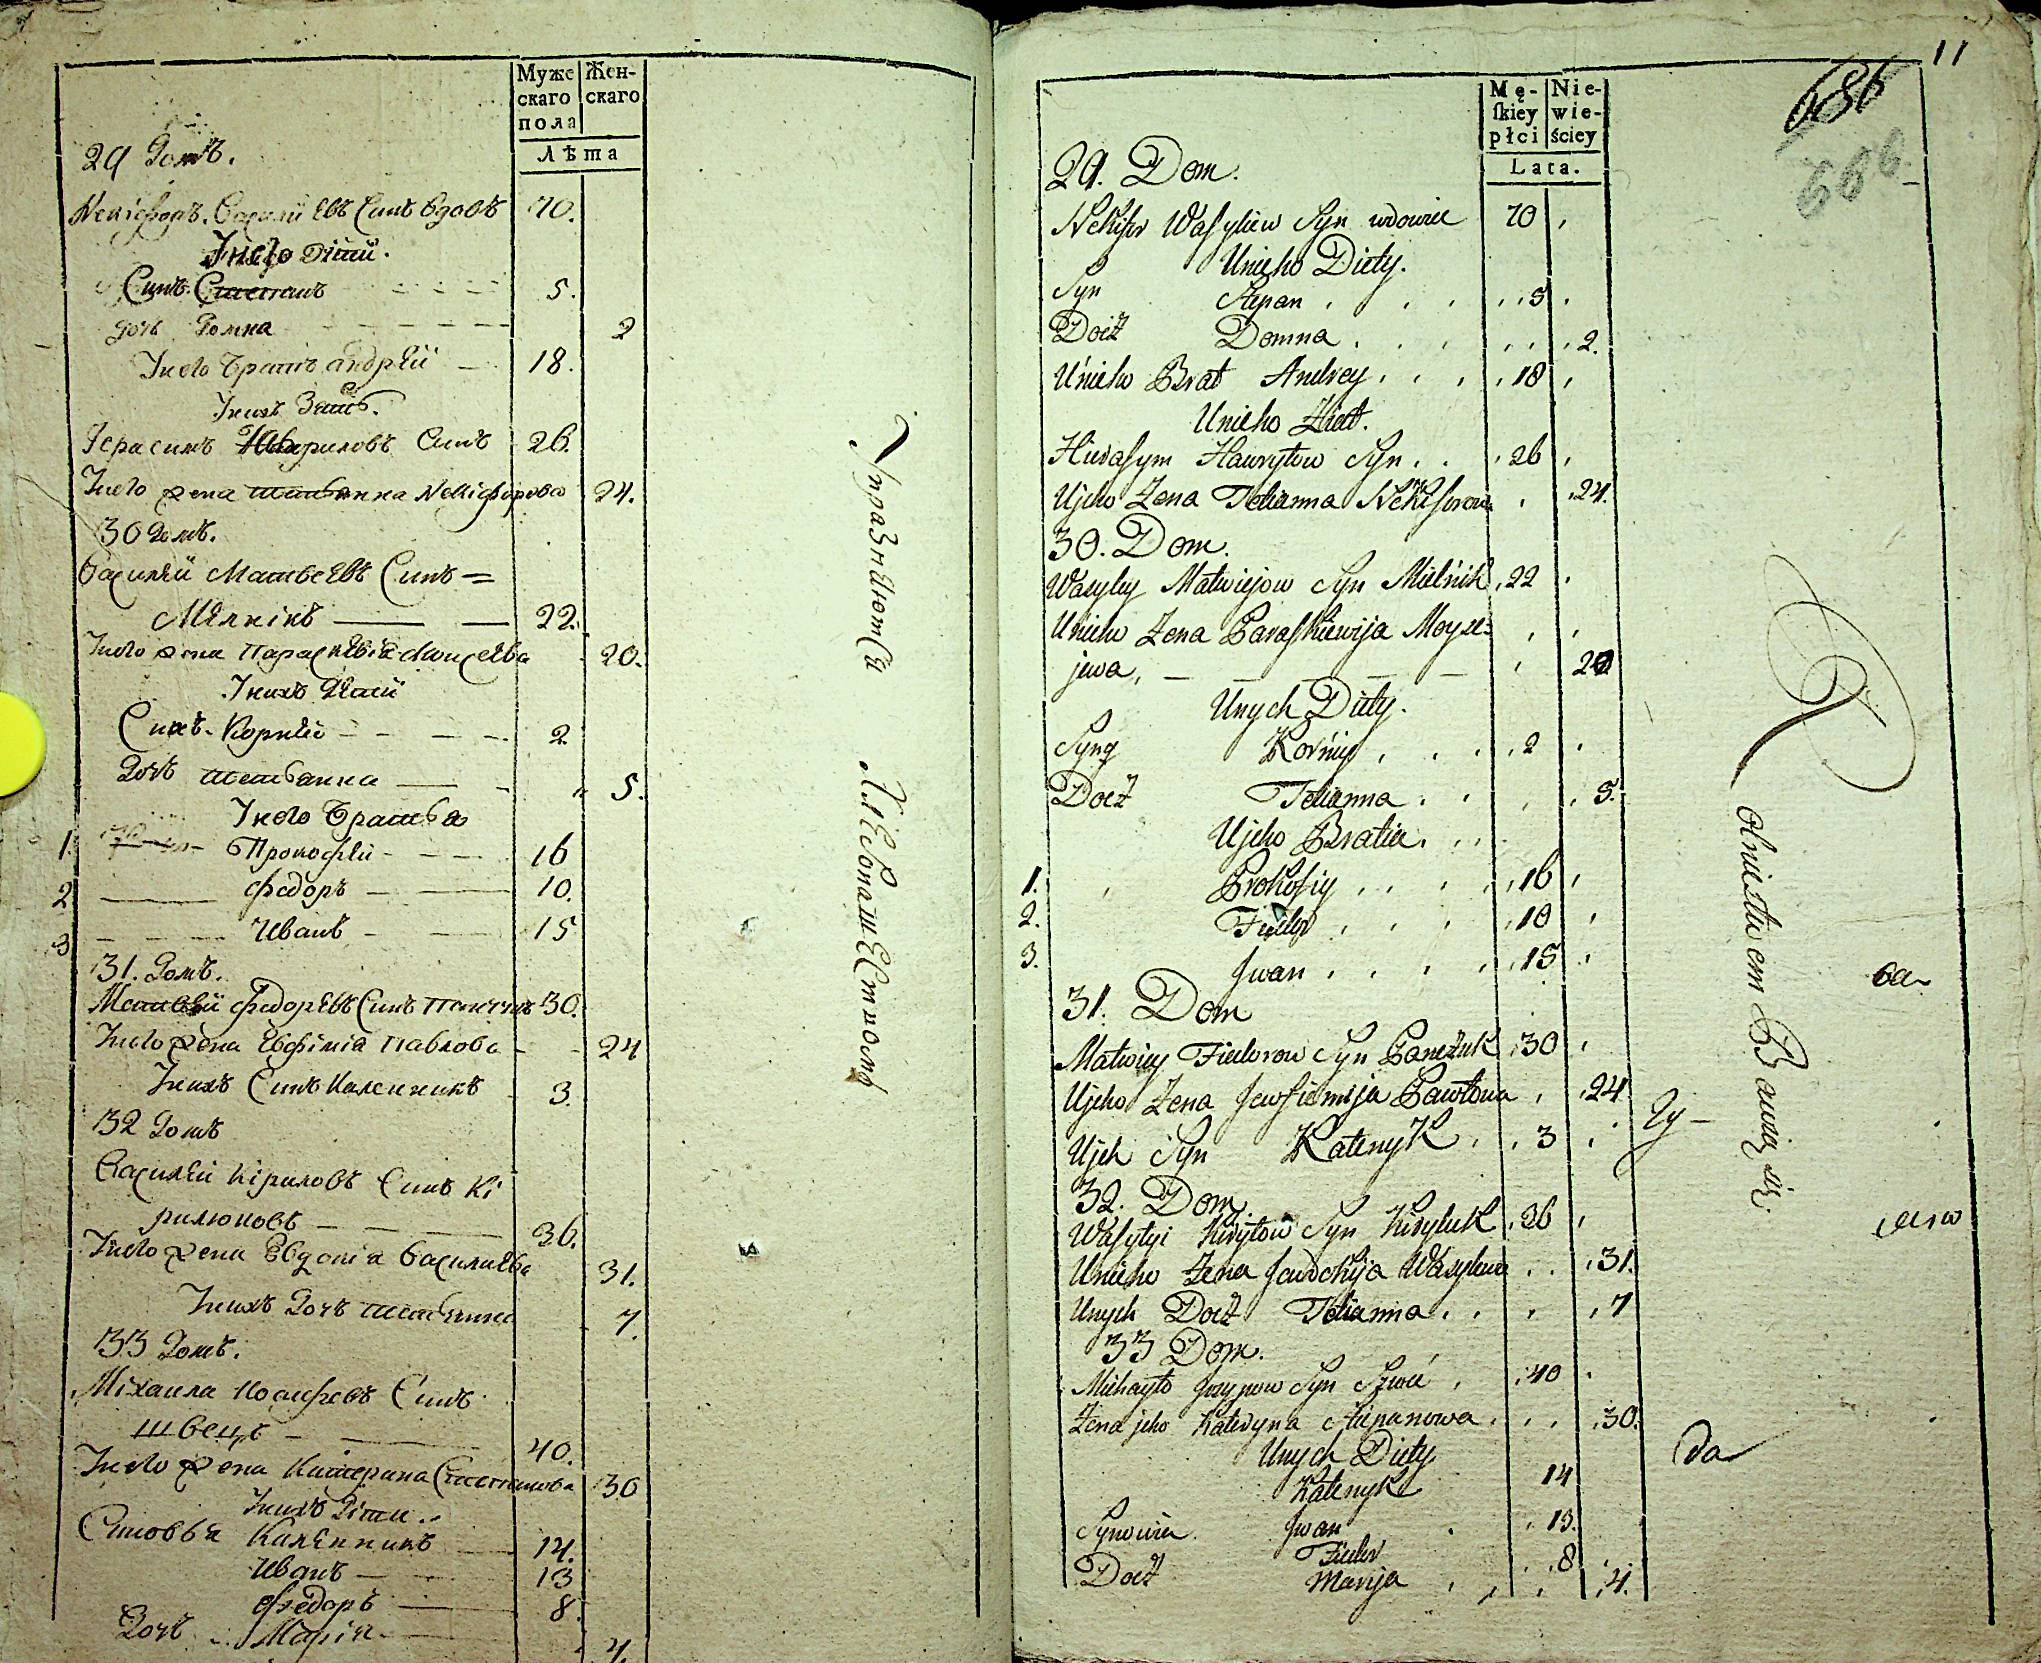 Муже Жен-
скаго скаго
пола
Лѣта
29 Домъ.
Никіфоръ Василіевъ Синъ Вдовъ 70.
У него діти.
Синъ Степанъ 5.
дочь Домна 2
У него Братъ андрей 18.
У нихъ Зять.
Герасимъ Гавриловъ Синъ 26.
У него жена татіанна Никіфорова 24.
30 Домъ.
Василій Матвеевъ Синъ =
Мелнікъ 22.
У него жена Параскевія Моисеева 20.
У нихъ Дети
Синъ Корней 2
Дочь татіанна 5.
У него братья
1. Прокофей 16
2 федоръ 10.
3 Иванъ 15
31. Домъ.
Матвей федоревъ Синъ 30.
У него жена Евфіміа Павлова 24
У нихъ Синъ Каленникъ 3.
32 Домъ
Василей Кіриловъ Синъ Кі
рилюковъ 36.
У него жена Евдокіа Василиева 31.
У нихъ Дочь татіанна 7.
33 Домъ.
Міхаила Иосифовъ Синъ
швецъ 40.
У него жена Катерина Степанова 30
У нихъ Діти
Синовья Каленникъ 14.
Иванъ 13
федоръ 8.
Дочь Марія 4.
Упразняются Хлебопашествомъ
11
686
686
Mę- Nie-
ſkiey wie-
płci ściey
Lata.
29. Dom.
Nekifor Wasylew Syn wdowiec 70
Unieho Diety.
Syn Stepan 5
Docż Domna 2.
Unieho Brat Andrey 18
Unieho Ziat.
Hierasym Hawryłow Syn 26
Ujeho Żena Tetianna Nekiforowa 24.
30. Dom.
Wasyley Matwiejow Syn Mielnik 22
Unieho Żena Paraskiewija Moyse-
jewa 20
Unych Diety.
Syn Korniey 2
Docż Tetianna 5.
Ujeho Bratia.
1. Prokofiy 16
2. Fiedor 10
3. Jwan 15
31. Dom
Matwiey Fiedorow Syn Panczuk 30
Ujeho Żena Jewfiemija Pawłowa 24
Ujch Syn Kalenyk 3
32. Dom.
Wasylyi Kiryłow Syn Kiryluk 36
Unieho Żena Jawdokija Wasylewa 31.
Unych Docż Tetianna 7
33 Dom.
Michayło Jozypow Syn Szwec 40
Żena jeho Kateryna Stepanowa 30.
Unych Diety
Kalenyk 14
Synowie Jwan 13.
Fiedor 8
Docż Marija 4.
Rolnictwem Bawią się.